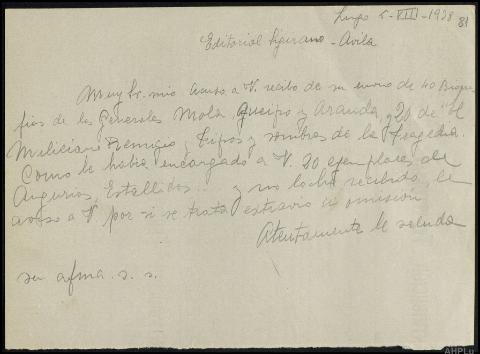 Lugo 5-VIII-1938
81
Editorial Sigirano-Avila
Muy Sr. mio acuso a V. recibo de su envio de 40 Biogra
fias de los Generales Mola, Queipo y Aranda, y 20 de "El
Miliciano Remigio y Tipos y sombras de la tragedia.
Como le habia encargado a V. 20 ejemplares de
Augurios, Estallidos... y no los he recibido, le
aviso a V. por si se trata extravio u omisión
Atentamente le saluda
su afma. s. s.
AHPLu